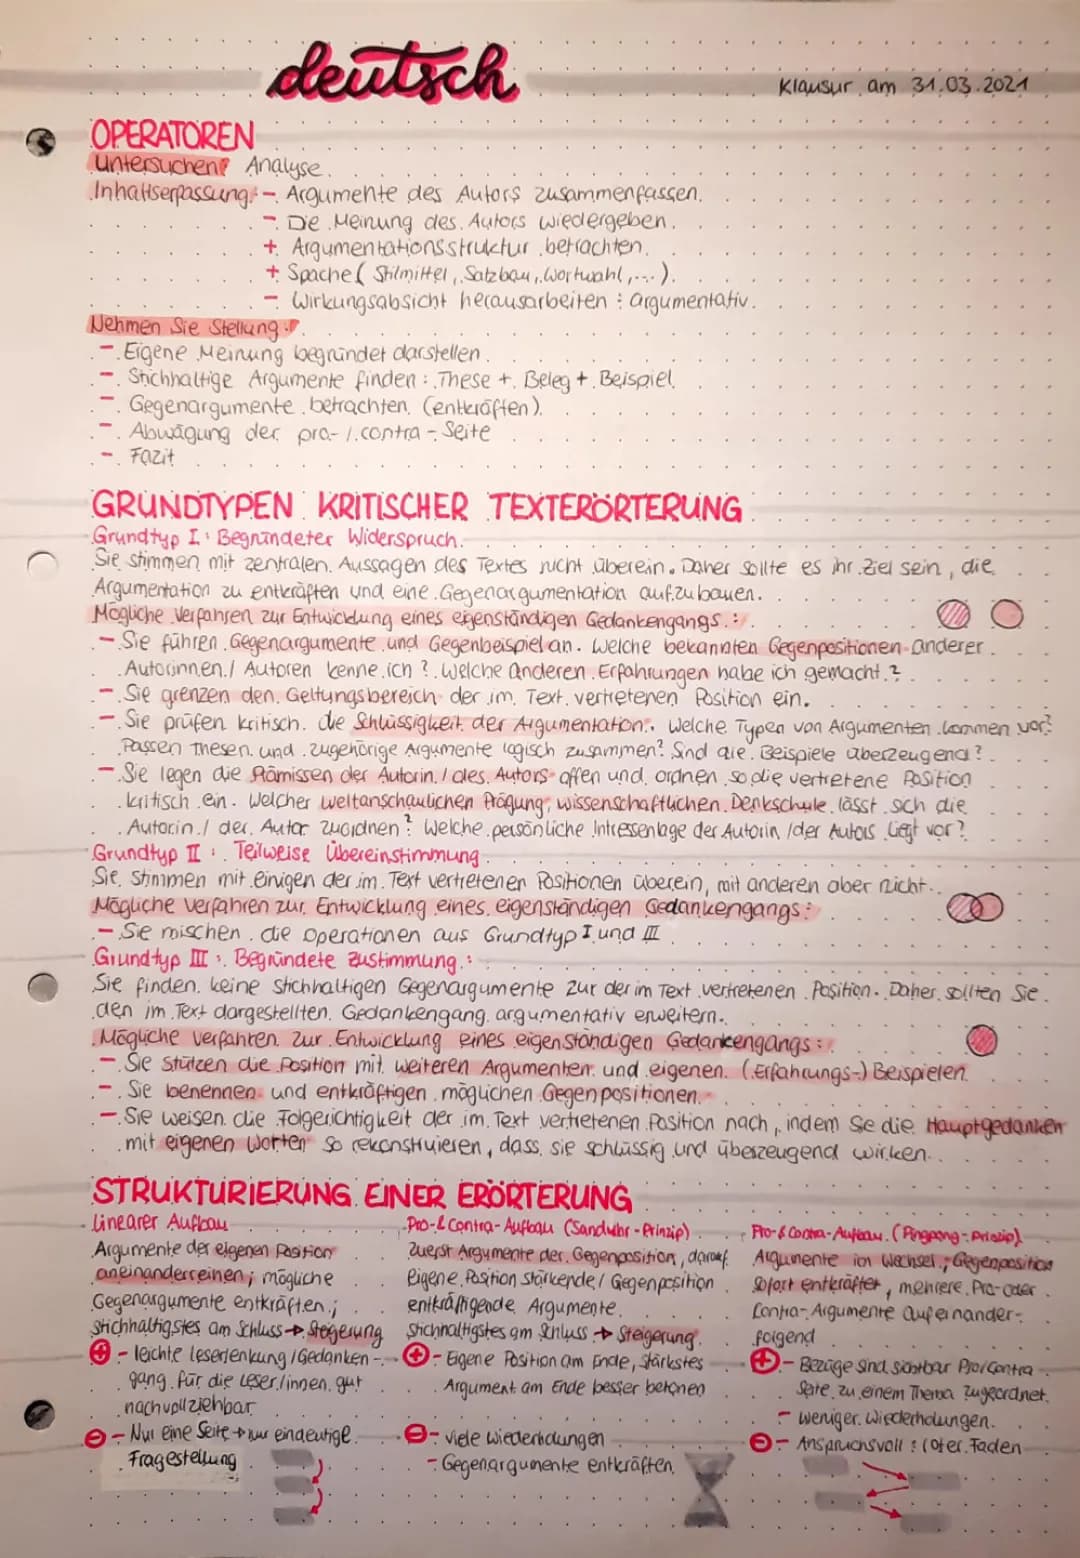 deutsch
Klausur am 31.03.2021
OPERATOREN
Untersuchen: Analyse.
Inhaltserfassung: - Argumente des Autors zusammenfassen.
- Die Meinung des Autors wiedergeben.
+ Argumentationsstruktur betrachten.
+ Spache (Stilmittel, Satzbau, Wortwahl, ...).
- Wirkungsabsicht herausarbeiten: argumentativ.
Nehmen Sie Stellung:
- Eigene Meinung begründet darstellen.
- Stichhaltige Argumente finden: These + Beleg + Beispiel.
- Gegenargumente betrachten (entkräften).
- Abwägung der pro- / contra - Seite
- Fazit
GRUNDTYPEN KRITISCHER TEXTERÖRTERUNG
Grundtyp I: Begründeter Widerspruch.
Sie stimmen mit zentralen Aussagen des Textes nicht überein. Daher sollte es ihr Ziel sein, die
Argumentation zu entkräften und eine Gegenargumentation aufzubauen.
Mögliche Verfahren zur Entwicklung eines eigenständigen Gedankengangs:
- Sie führen Gegenargumente und Gegenbeispiel an. Welche bekannten Gegenpositionen anderer
Autorinnen / Autoren kenne ich? Welche anderen Erfahrungen habe ich gemacht?
- Sie grenzen den Geltungsbereich der im Text vertretenen Position ein.
- Sie prüfen kritisch die Schlüssigkeit der Argumentation. Welche Typen von Argumenten kommen vor?
Passen Thesen und zugehörige Argumente logisch zusammen? Sind die Beispiele überzeugend?
- Sie legen die Prämissen der Autorin / des Autors offen und ordnen so die vertretene Position
kritisch ein. Welcher weltanschaulichen Prägung, wissenschaftlichen Denkschule lässt sich die
Autorin / der Autor zuordnen? Welche persönliche Intressenlage der Autorin / der Autors liegt vor?
Grundtyp II: Teilweise Übereinstimmung
Sie stimmen mit einigen der im Text vertretenen Positionen überein, mit anderen aber nicht.
Mögliche Verfahren zur Entwicklung eines eigenständigen Gedankengangs:
- Sie mischen die Operationen aus Grundtyp I und III
Grundtyp III: Begründete Zustimmung:
Sie finden keine stichhaltigen Gegenargumente zur der im Text vertretenen Position. Daher sollten Sie
den im Text dargestellten Gedankengang argumentativ erweitern.
Mögliche Verfahren zur Entwicklung eines eigenständigen Gedankengangs:
- Sie stützen die Position mit weiteren Argumenten und eigenen (Erfahrungs-) Beispielen
- Sie benennen und entkräftigen möglichen Gegenpositionen.
- Sie weisen die Folgerichtigkeit der im Text vertretenen Position nach, indem Sie die Hauptgedanken
mit eigenen Worten so rekonstruieren, dass sie schlüssig und überzeugend wirken.
STRUKTURIERUNG EINER ERÖRTERUNG
Linearer Aufbau
Argumente der eigenen Position
aneinanderreinen; mögliche
Gegenargumente entkräften;
stichhaltigstes am Schluss → Steigerung
+ - leichte Leserlenkung / Gedanken-
gang für die Leser/innen gut
nachvollziehbar
- - Nur eine Seite → nur eindeutige
Fragestellung
Pro-& Contra-Aufbau (Sanduhr-Prinzip)
Zuerst Argumente der Gegenposition, darauf
eigene Position stärkende / Gegenposition
entkräftigende Argumente.
Stichhaltigstes am Schluss → Steigerung.
+ - Eigene Position am Ende, stärkstes
Argument am Ende besser betonen
- - viele Wiederholungen
- Gegenargumente entkräften
Pro-& Contra-Aufbau (Pingpong-Prinzip)
Argumente im Wechsel; Gegenposition
sofort entkräftet, mehrere Pro-oder
Contra-Argumente aufeinander-
folgend
+ - Bezüge sind sichtbar Pro/Contra
Seite zu einem Thema zugeordnet.
- weniger Wiederholungen.
- - Anspruchsvoll: roter Faden